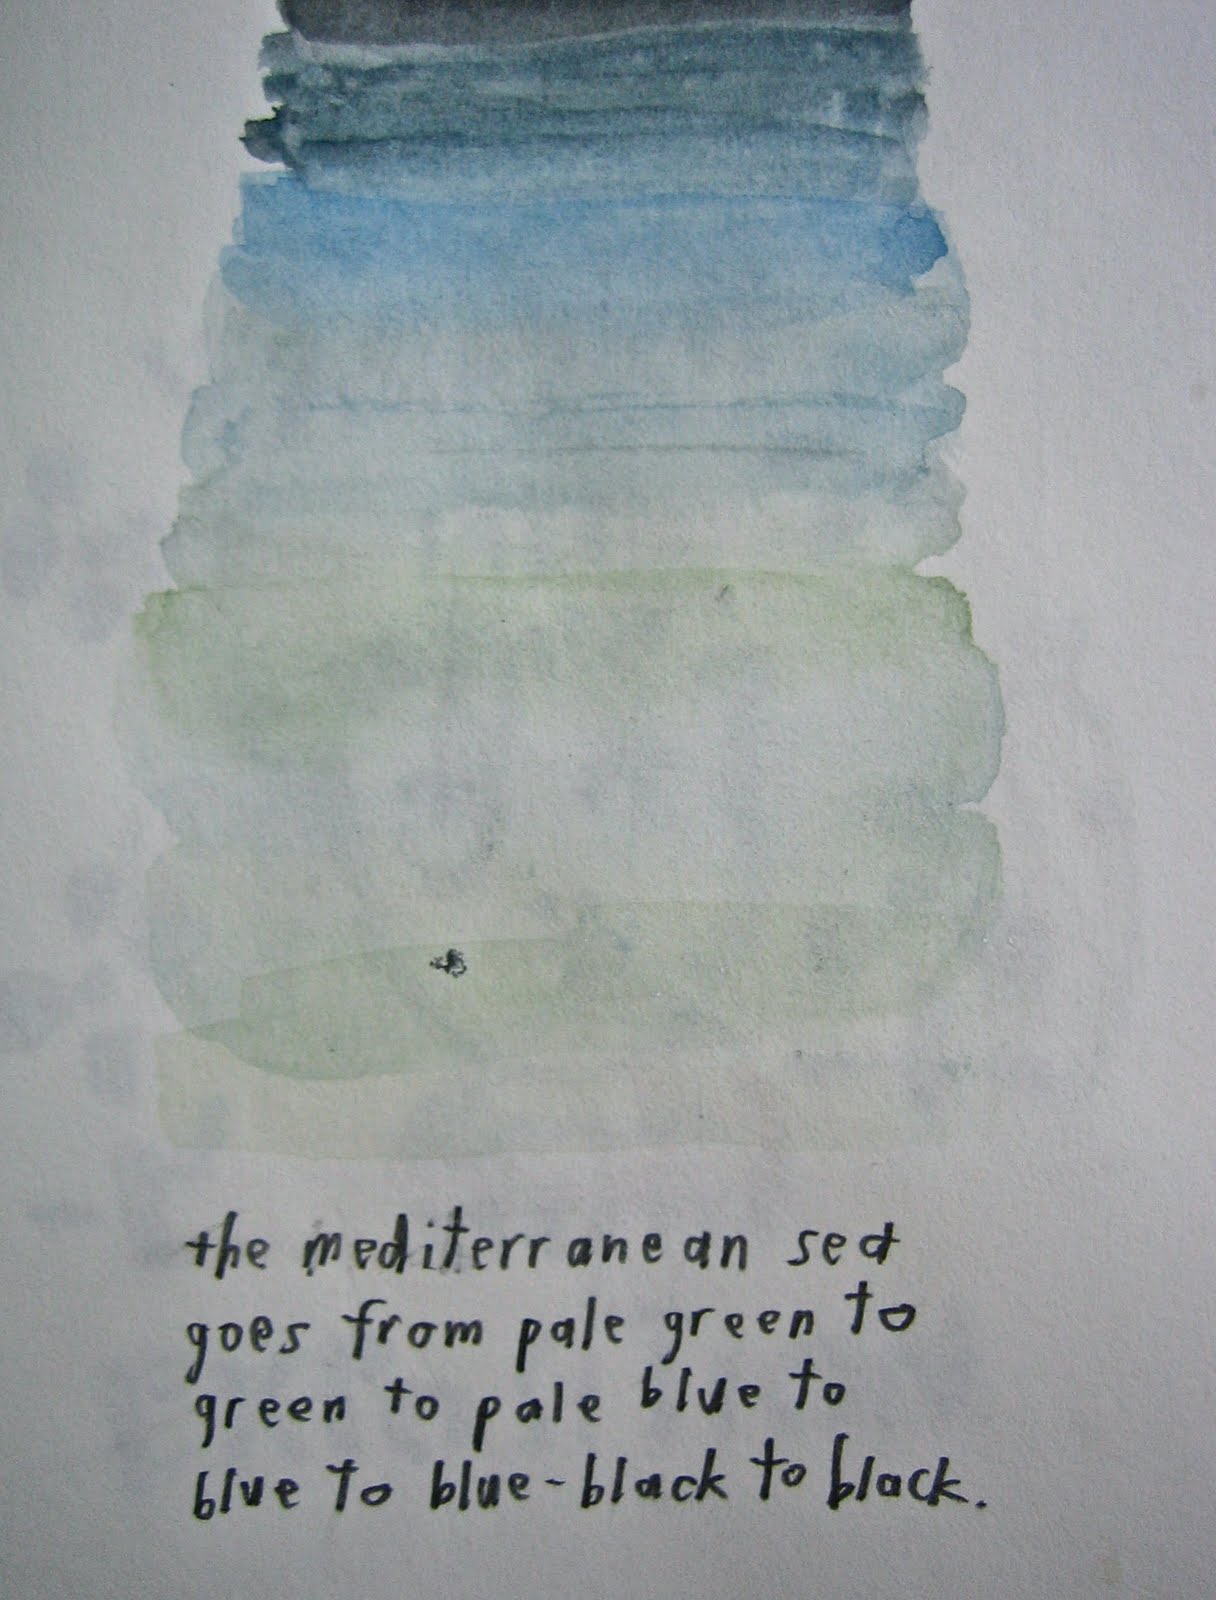 the mediterranean sea
goes from pale green to
green to pale blue to
blue to blue-black to black.